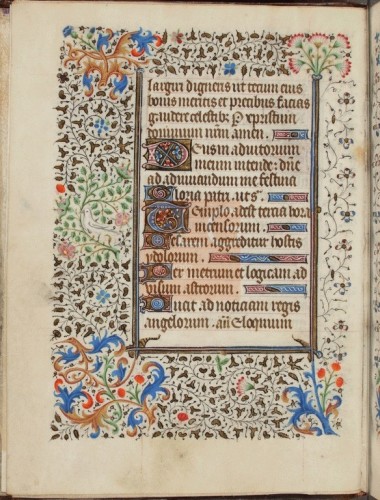 largus digneris ut tecum eius
bonis meritis et precibus facias
gaudere celestib; P xpristum
dominum nrm amen.
Deus in adiutorium
meum intende: dne
ad adiuvandum me festina
Gloria patri. ut s.
Templo adest tercia hora
incensorum.
aggreditur hostis
ydolorum.
Per metrum et logicam ad
visum astrorum.
Ducat ad noticiam regis
angelorum. an Eloquium